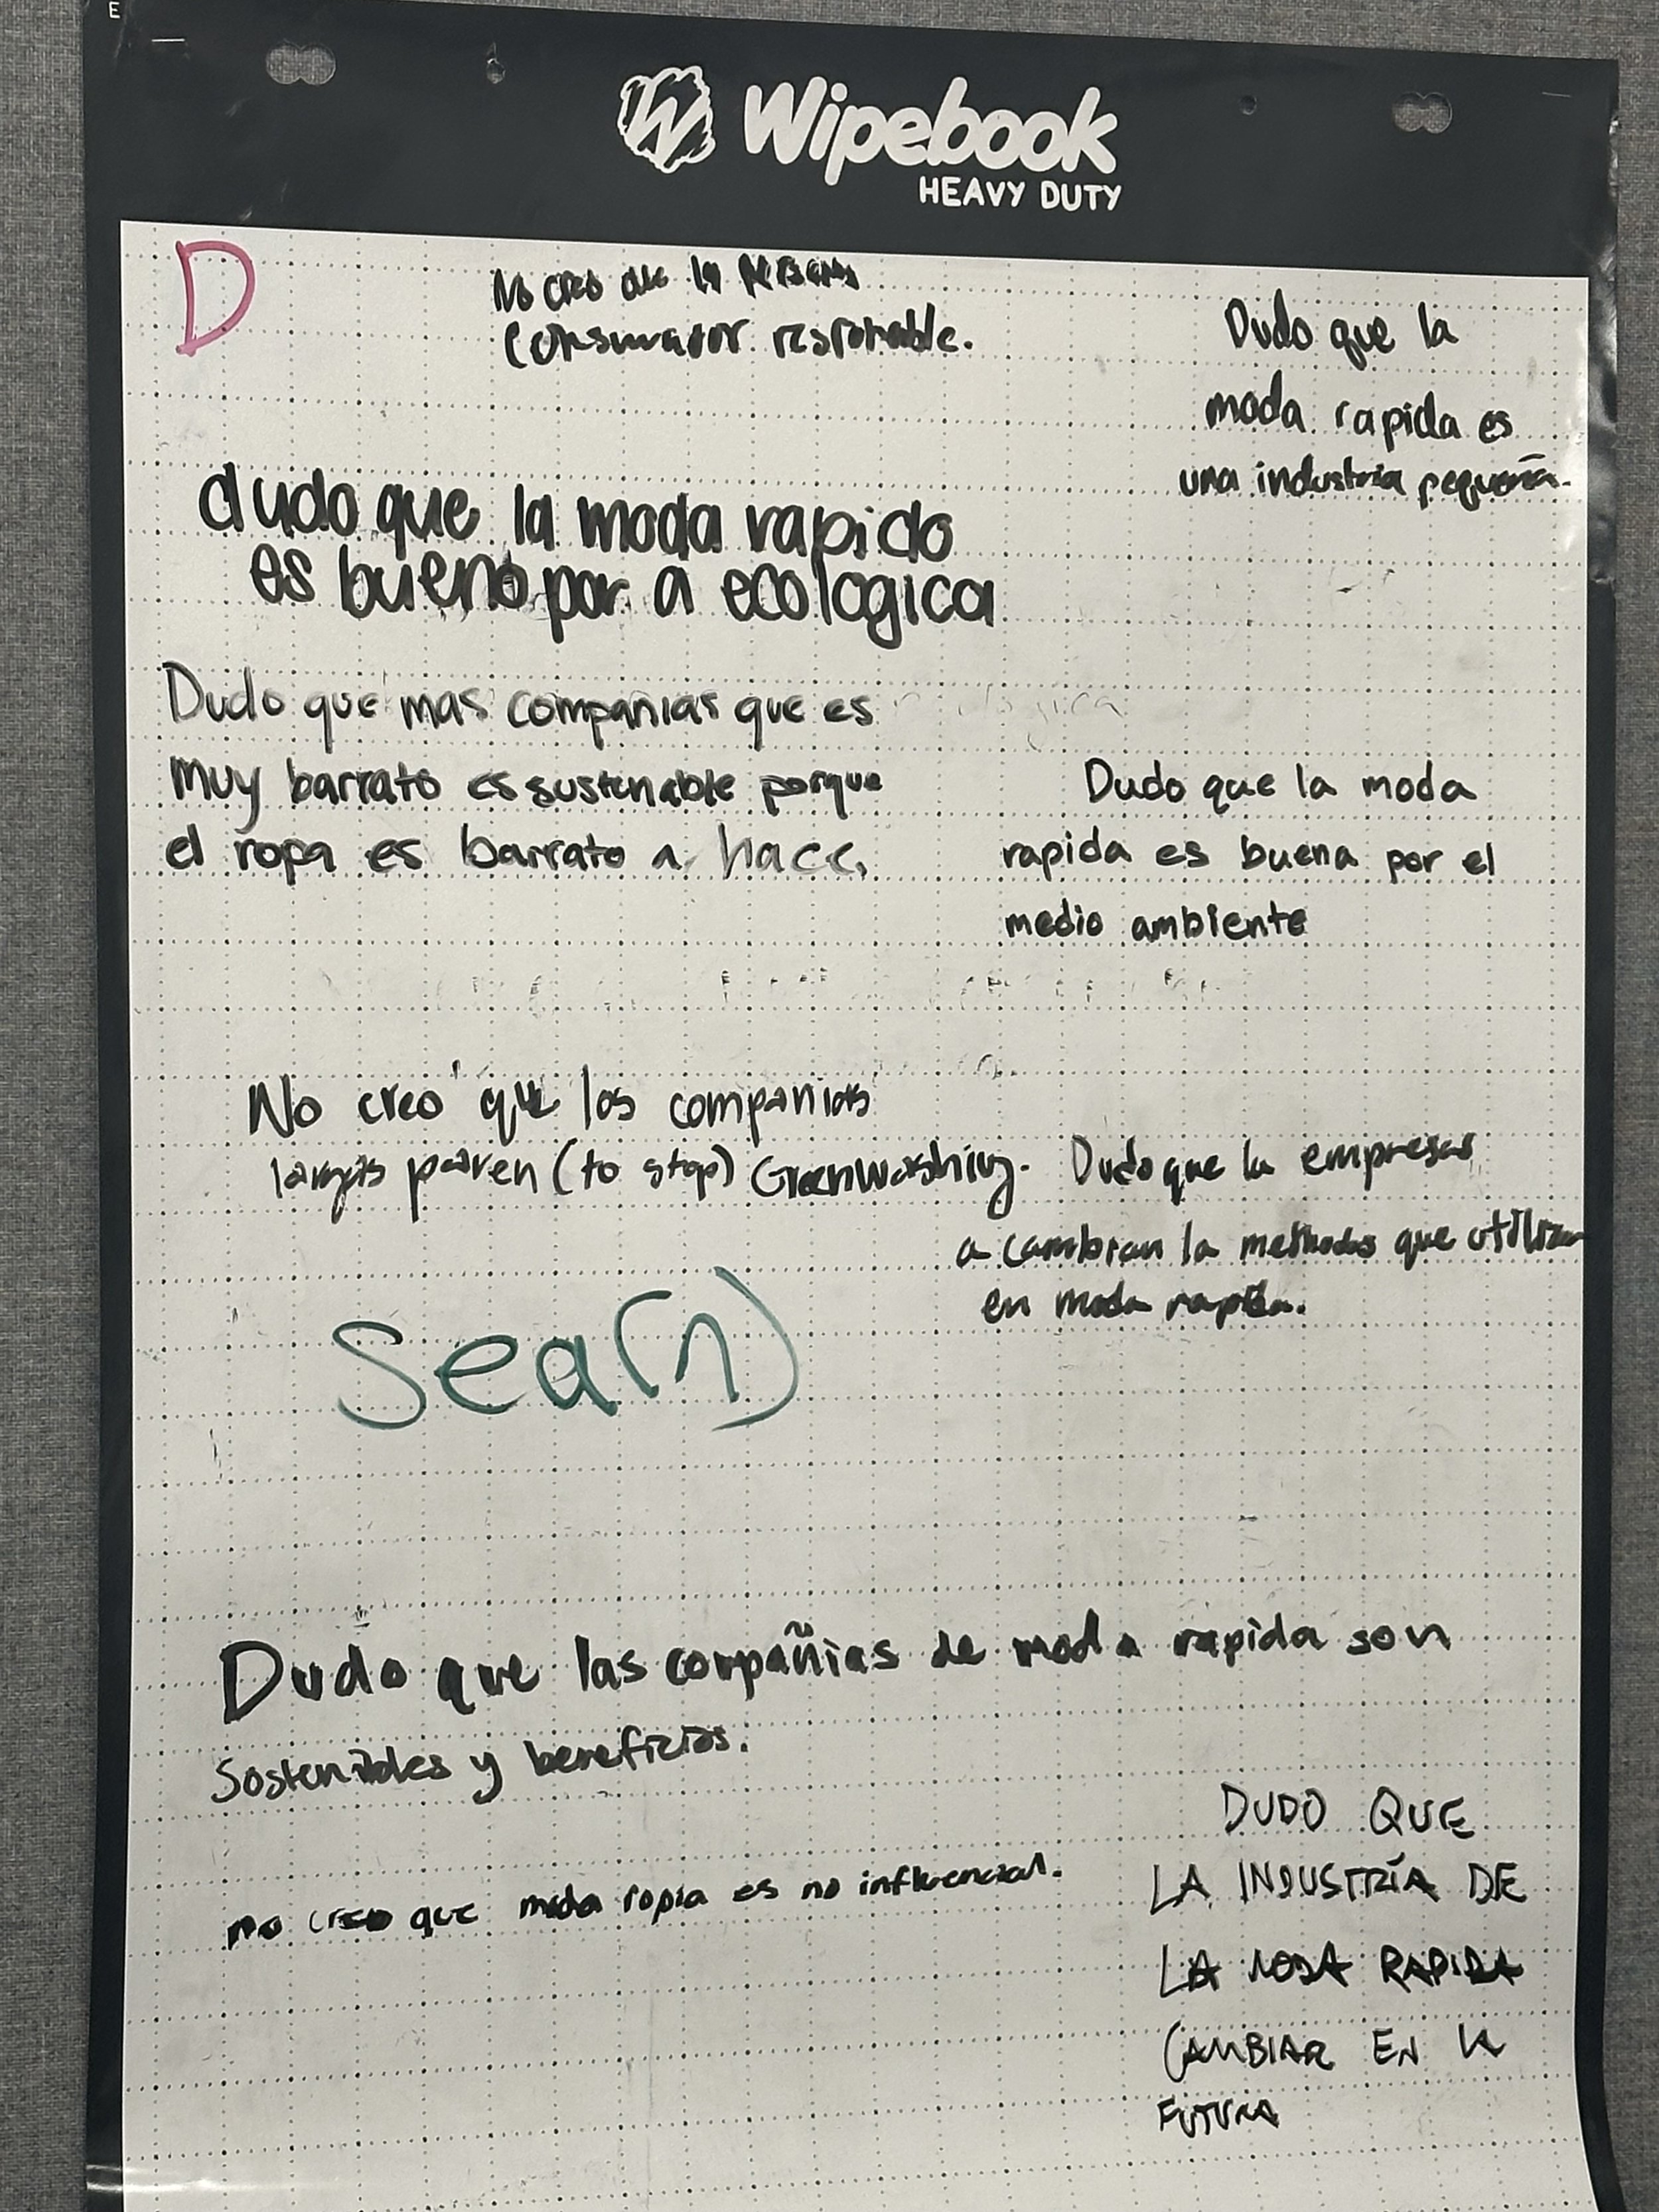 E
Wipebook
HEAVY DUTY
D
No creo que la persona
consumador responable.
Dudo que la
moda rapida es
una industria pequeña.
dudo que la moda rapido
es bueno por a ecologica
Dudo que mas companias que es
muy barrato es sustenable porque
el ropa es barrato a hacer
Dudo que la moda
rapida es buena por el
medio ambiente
No creo que los companias
larges paren (to stop) Greenwashing.
Dudo que la empresas
a cambian la methodos que utilizan
en moda rapida.
Sea(n)
Dudo que las compañias de moda rapida son
Sostenibles y beneficios.
no creo que moda ropia es no influencial.
DUDO QUE
LA INDUSTRÍA DE
LA MODA RAPIDA
CAMBIAR EN LA
FUTURA